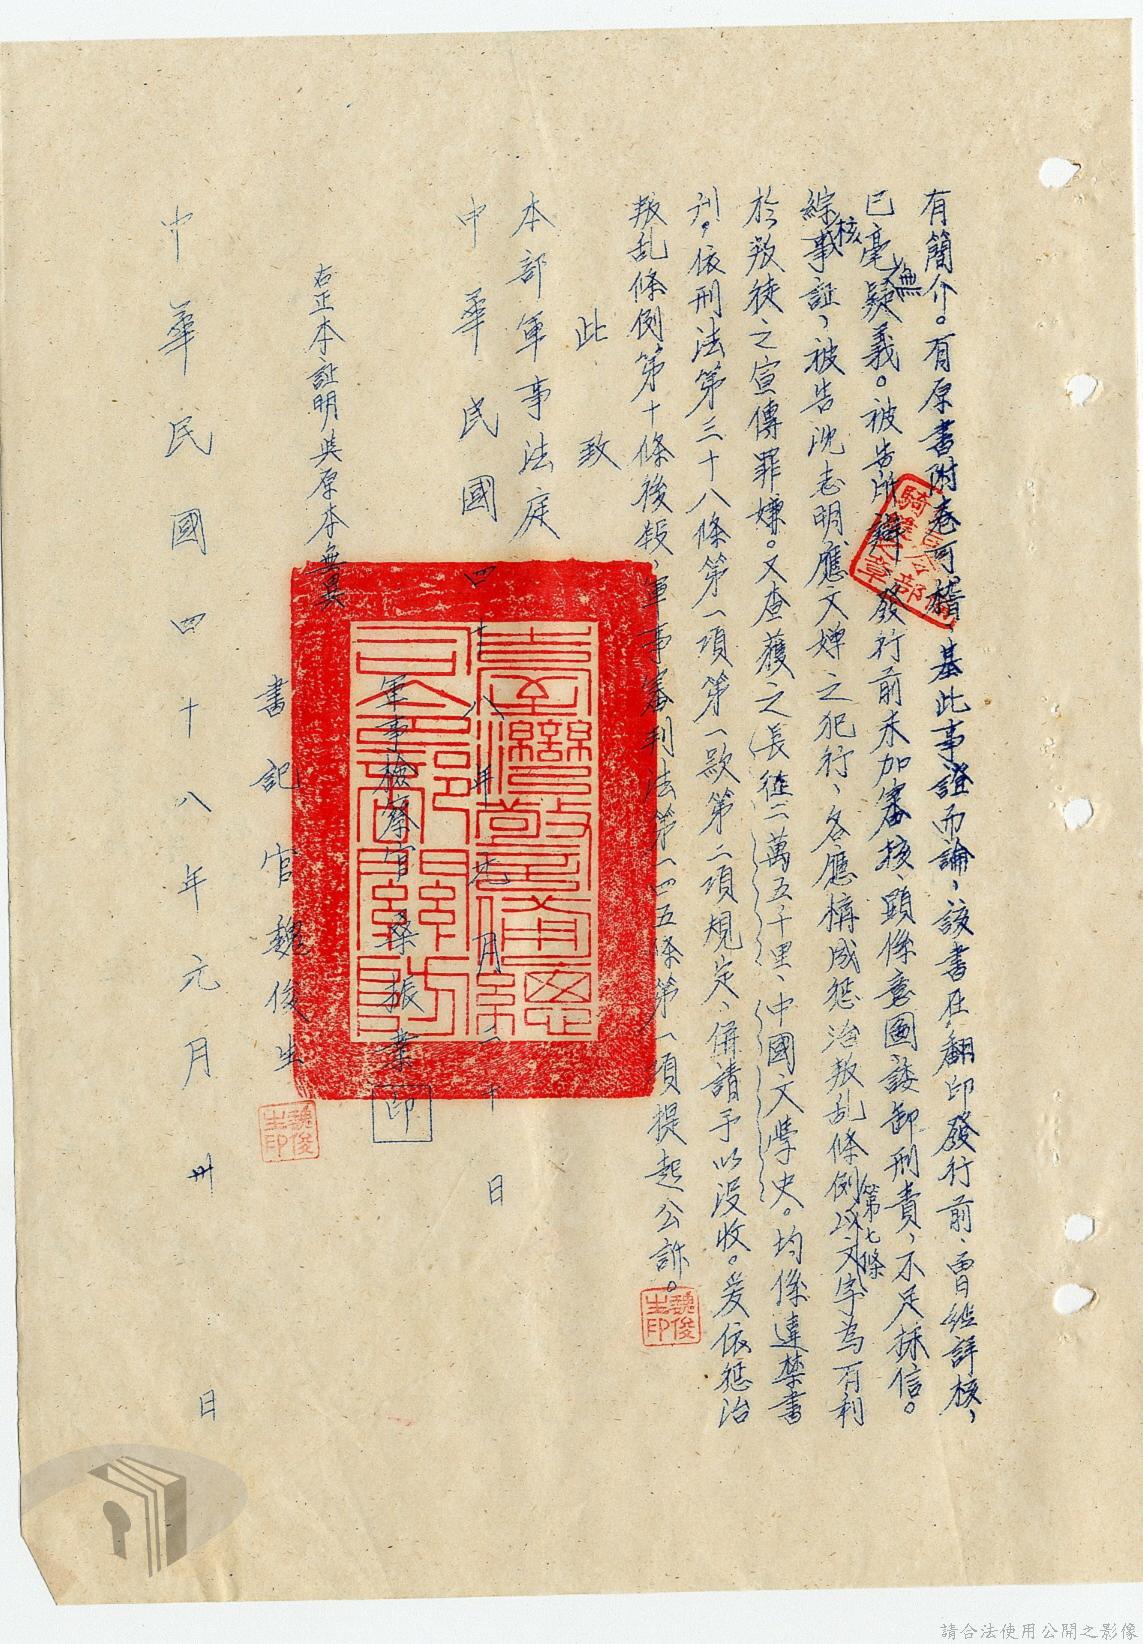 有簡介。有原書附卷可稽，基此事證而論，該書在翻印發行前、曾經詳核，
已毫無疑義。被告所辯，發行前未加審核、顯係意圖諉卸刑責，不足採信。
綜核事証，被告沈志明應文嬋之犯行、各應構成惩治叛乱條例第七條以文字為有利
於叛徒之宣傳罪嫌。又查獲之長征二萬五千里、中國文學史。均係違禁書
刋。依刑法第三十八條第一項第一款第二項規定、併請予以沒收。爰依惩治
叛乱條例第十條後段、軍事審判法第一四五條第一項提起公訴。
此致
本部軍事法庭
中華民國四十八年元月二十日
軍事檢察官桑振業 印
右正本証明與原本無異
書記官魏俊生
中華民國四十八年元月卅日
臺灣警備總司令部軍法處
魏俊生印
魏俊生印
請合法使用公開之影像